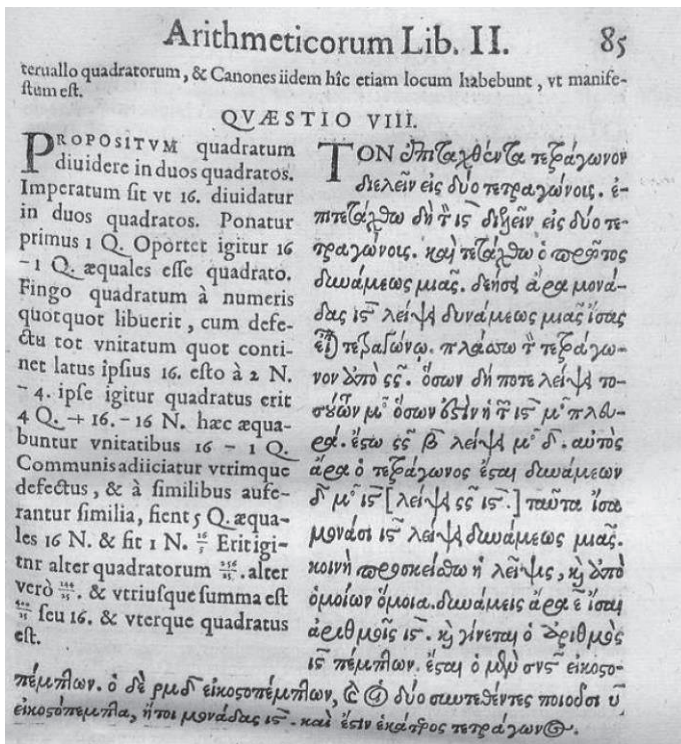 Arithmeticorum Lib. II. 85
teruallo quadratorum, & Canones iidem hîc etiam locum habebunt, vt manife-
stum est.
QVÆSTIO VIII.
PROPOSITVM quadratum
diuidere in duos quadratos.
Imperatum sit vt 16. diuidatur
in duos quadratos. Ponatur
primus 1 Q. Oportet igitur 16
– 1 Q. æquales esse quadrato.
Fingo quadratum à numeris
quotquot libuerit, cum defe-
ctu tot vnitatum quot conti-
net latus ipsius 16. esto à 2 N.
– 4. ipse igitur quadratus erit
4 Q. + 16. – 16 N. hæc æqua-
buntur vnitatibus 16 – 1 Q.
Communis adiiciatur vtrimque
defectus, & à similibus aufe-
rantur similia, fient 5 Q. æqua-
les 16 N. & fit 1 N. 16/5 Erit igi-
tur alter quadratorum 256/25. alter
verò 144/25. & vtriusque summa est
400/25 seu 16. & vterque quadratus
est.
ΤΟΝ ἐπιταχθέντα τετράγωνον
διελεῖν εἰς δύο τετραγώνοις. ἐ-
πιτετάχθω δὴ τὸν ιϛ διελεῖν εἰς δύο τε-
τραγώνοις. καὶ τετάχθω ὁ πρῶτος
δυνάμεως μιᾶς. δεήσει ἄρα μονά-
δας ιϛ λείψει δυνάμεως μιᾶς ἴσας
εἶναι τετραγώνῳ. πλάσσω τὸν τετράγω-
νον ἀπὸ ςς. ὅσων δή ποτε λείψει το-
σούτων μο ὅσων ἐστὶν ἡ τοῦ ιϛ μο πλευ-
ρά. ἔστω ςς β λείψει μο δ. αὐτὸς
ἄρα ὁ τετράγωνος ἔσται δυνάμεων
δ μο ιϛ [λείψει ςς ιϛ.] ταῦτα ἴσα
μονάσι ιϛ λείψει δυνάμεως μιᾶς.
κοινὴ προσκείσθω ἡ λεῖψις, κὶ ἀπὸ
ὁμοίων ὅμοια. δυνάμεις ἄρα ε ἴσαι
ἀριθμοῖς ιϛ. κὶ γίνεται ὁ ἀριθμὸς
ιϛ πέμπτων. ἔσται ὁ μὲν σνϛ εἰκοσο-
πέμπτων. ὁ δὲ ρμδ εἰκοσοπέμπτων, καὶ οἱ δύο συντεθέντες ποιοῦσι υ
εἰκοσόπεμπτα, ἤτοι μονάδας ιϛ. καὶ ἔστιν ἑκάτερος τετράγωνος.